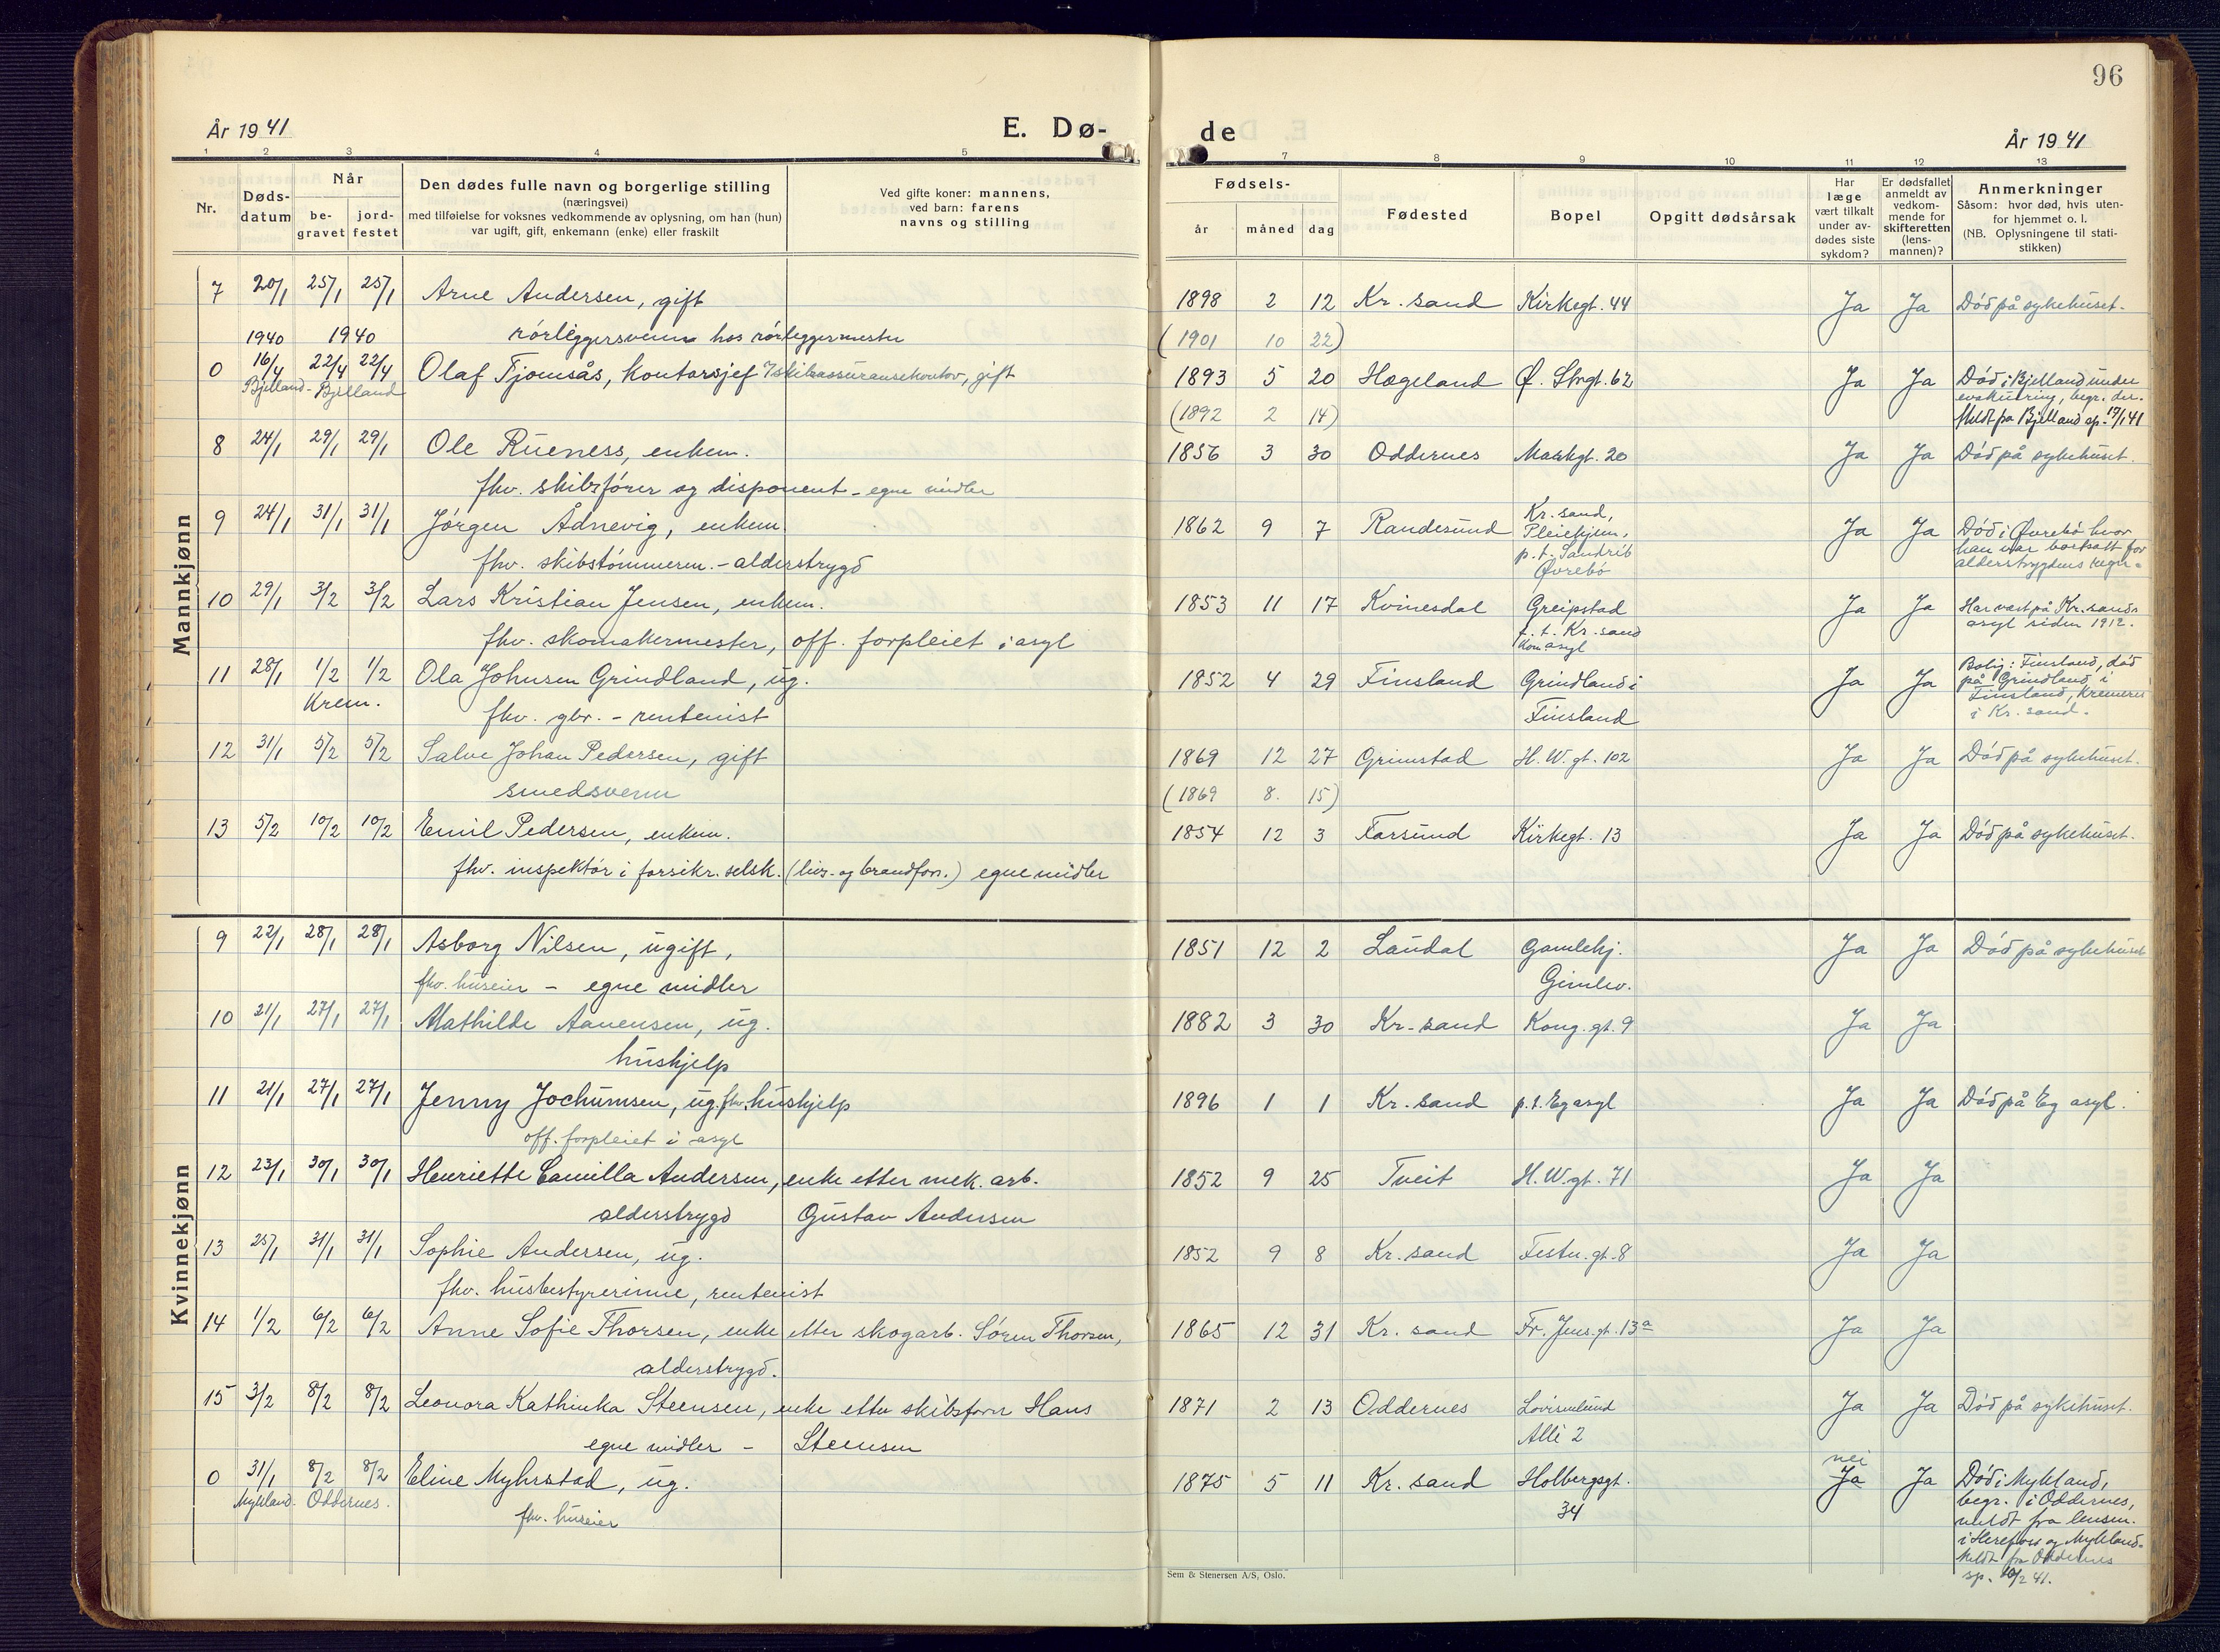 96
År 1941
E. Dø-
de
År 1941
1 2 3 4 5 7 8 9 10 11 12 13
Nr.
Døds-
datum
Når
be-
gravet
jord-
festet
Den dødes fulle navn og borgerlige stilling
(næringsvei)
med tilføielse for voksnes vedkommende av oplysning, om han (hun)
var ugift, gift, enkemann (enke) eller fraskilt
Ved gifte koner: mannens,
ved barn: farens
navns og stilling
Fødsels-
år måned dag
Fødested
Bopel
Opgitt dødsårsak
Har
læge
vært tilkalt
under av-
dødes siste
sykdom?
Er dødsfallet
anmeldt av
vedkom-
mende for
skifteretten
(lens-
mannen)?
Anmerkninger
Såsom: hvor død, hvis uten-
for hjemmet o. l.
(NB. Oplysningene til stati-
stikken)
Mannkjønn
7 20/1 25/1 25/1 Arne Andersen, gift 1898 2 12 Kr. sand Kirkegt. 44 Ja Ja Död på sykehuset.
1940 1940 rörleggersvenn hos rörleggermester (1901 10 22)
0 16/4 22/4 22/4 Olaf Fjomsås, kontorsjef i skibsassuransekontor, gift 1893 5 20 Hægeland Ø. Strgt. 62 Ja Ja Död i Bjelland under
Bjelland - Bjelland evakuering, begr. der.
(1892 2 14) Meldt fra Bjelland sp. 17/1 41
8 24/1 29/1 29/1 Ole Rueness, enkem. 1856 3 30 Oddernes Markgt. 20 Ja Ja Död på sykehuset.
fhv. skibsförer og disponent - egne midler
9 24/1 31/1 31/1 Jörgen Ådnevig, enkem. 1862 9 7 Randesund Kr. sand, Ja Ja Död i Øvrebö hvor
Pleiehjem, han var bortsatt for
fhv. skibstömmerm. - alderstrygd p.t. Sandrib alderstrygdens regn.
Øvrebö
10 29/1 3/2 3/2 Lars Kristian Jensen, enkem. 1853 11 17 Kvinesdal Greipstad Ja Ja Har vært på Kr. sands
p.t. Kr. sand asyl siden 1912.
fhv. skomakermester, off. forpleiet i asyl kom asyl
11 28/1 1/2 1/2 Ola Johnsen Grindland, ug. 1852 4 29 Finsland Grindland i Ja Ja Bolig: Finsland, död
Krem. på Grindland i
fhv. gbr. - rentenist Finsland Finsland, kremeret
i Kr. sand.
12 31/1 5/2 5/2 Salve Johan Pedersen, gift 1869 12 27 Grimstad H. W. gt. 102 Ja Ja Död på sykehuset.
smedsvenn (1869 8. 15)
13 5/2 10/2 10/2 Emil Pedersen, enkem. 1854 12 3 Farsund Kirkegt. 13 Ja Ja Död på sykehuset.
fhv. inspektör i forsikr. selsk. (livs- og brandfors.) egne midler
Kvinnekjønn
9 22/1 28/1 28/1 Asborg Nilsen, ugift, 1851 12 2 Laudal Gamlehj. Ja Ja Död på sykehuset
fhv. huseier - egne midler Gimlev.
10 21/1 27/1 27/1 Mathilde Aanensen, ug. 1882 3 30 Kr. sand Kong. gt. 9 Ja Ja
hushjelp
11 21/1 27/1 27/1 Jenny Jochumsen, ug. fhv. hushjelp 1896 1 1 Kr. sand p.t. Eg asyl Ja Ja Död på Eg asyl.
off. forpleiet i asyl
12 23/1 30/1 30/1 Henriette Camilla Andersen, enke etter mek. arb. 1852 9 25 Tveit H. W gt. 71 Ja Ja
alderstrygd Gustav Andersen
13 25/1 31/1 31/1 Sophie Andersen, ug. 1852 9 8 Kr. sand Festn. gt. 8 Ja Ja
fhv. husbestyrerinne, rentenist
14 1/2 6/2 6/2 Anne Sofie Thorsen, enke etter skogarb. Sören Thorsen, 1865 12 31 Kr. sand Fr. Jens. gt. 13a Ja Ja
alderstrygd.
15 3/2 8/2 8/2 Leonora Kathinka Steensen, enke etter skibsförer Hans 1871 2 13 Oddernes Lovisenlund Ja Ja Död på sykehuset.
egne midler - Steensen Allé 2
nei
0 31/1 8/2 8/2 Eline Myhrstad, ug. 1875 5 11 Kr. sand Holbergsgt. Ja Ja Död i Mykland,
Mykland - Oddernes. 34 begr. i Oddernes,
fhv. huseier meldt fra lensm.
i Herefoss og Mykland.
Meldt fra Oddernes
sp. 10/2 41.
Sem & Stenersen A/S, Oslo.